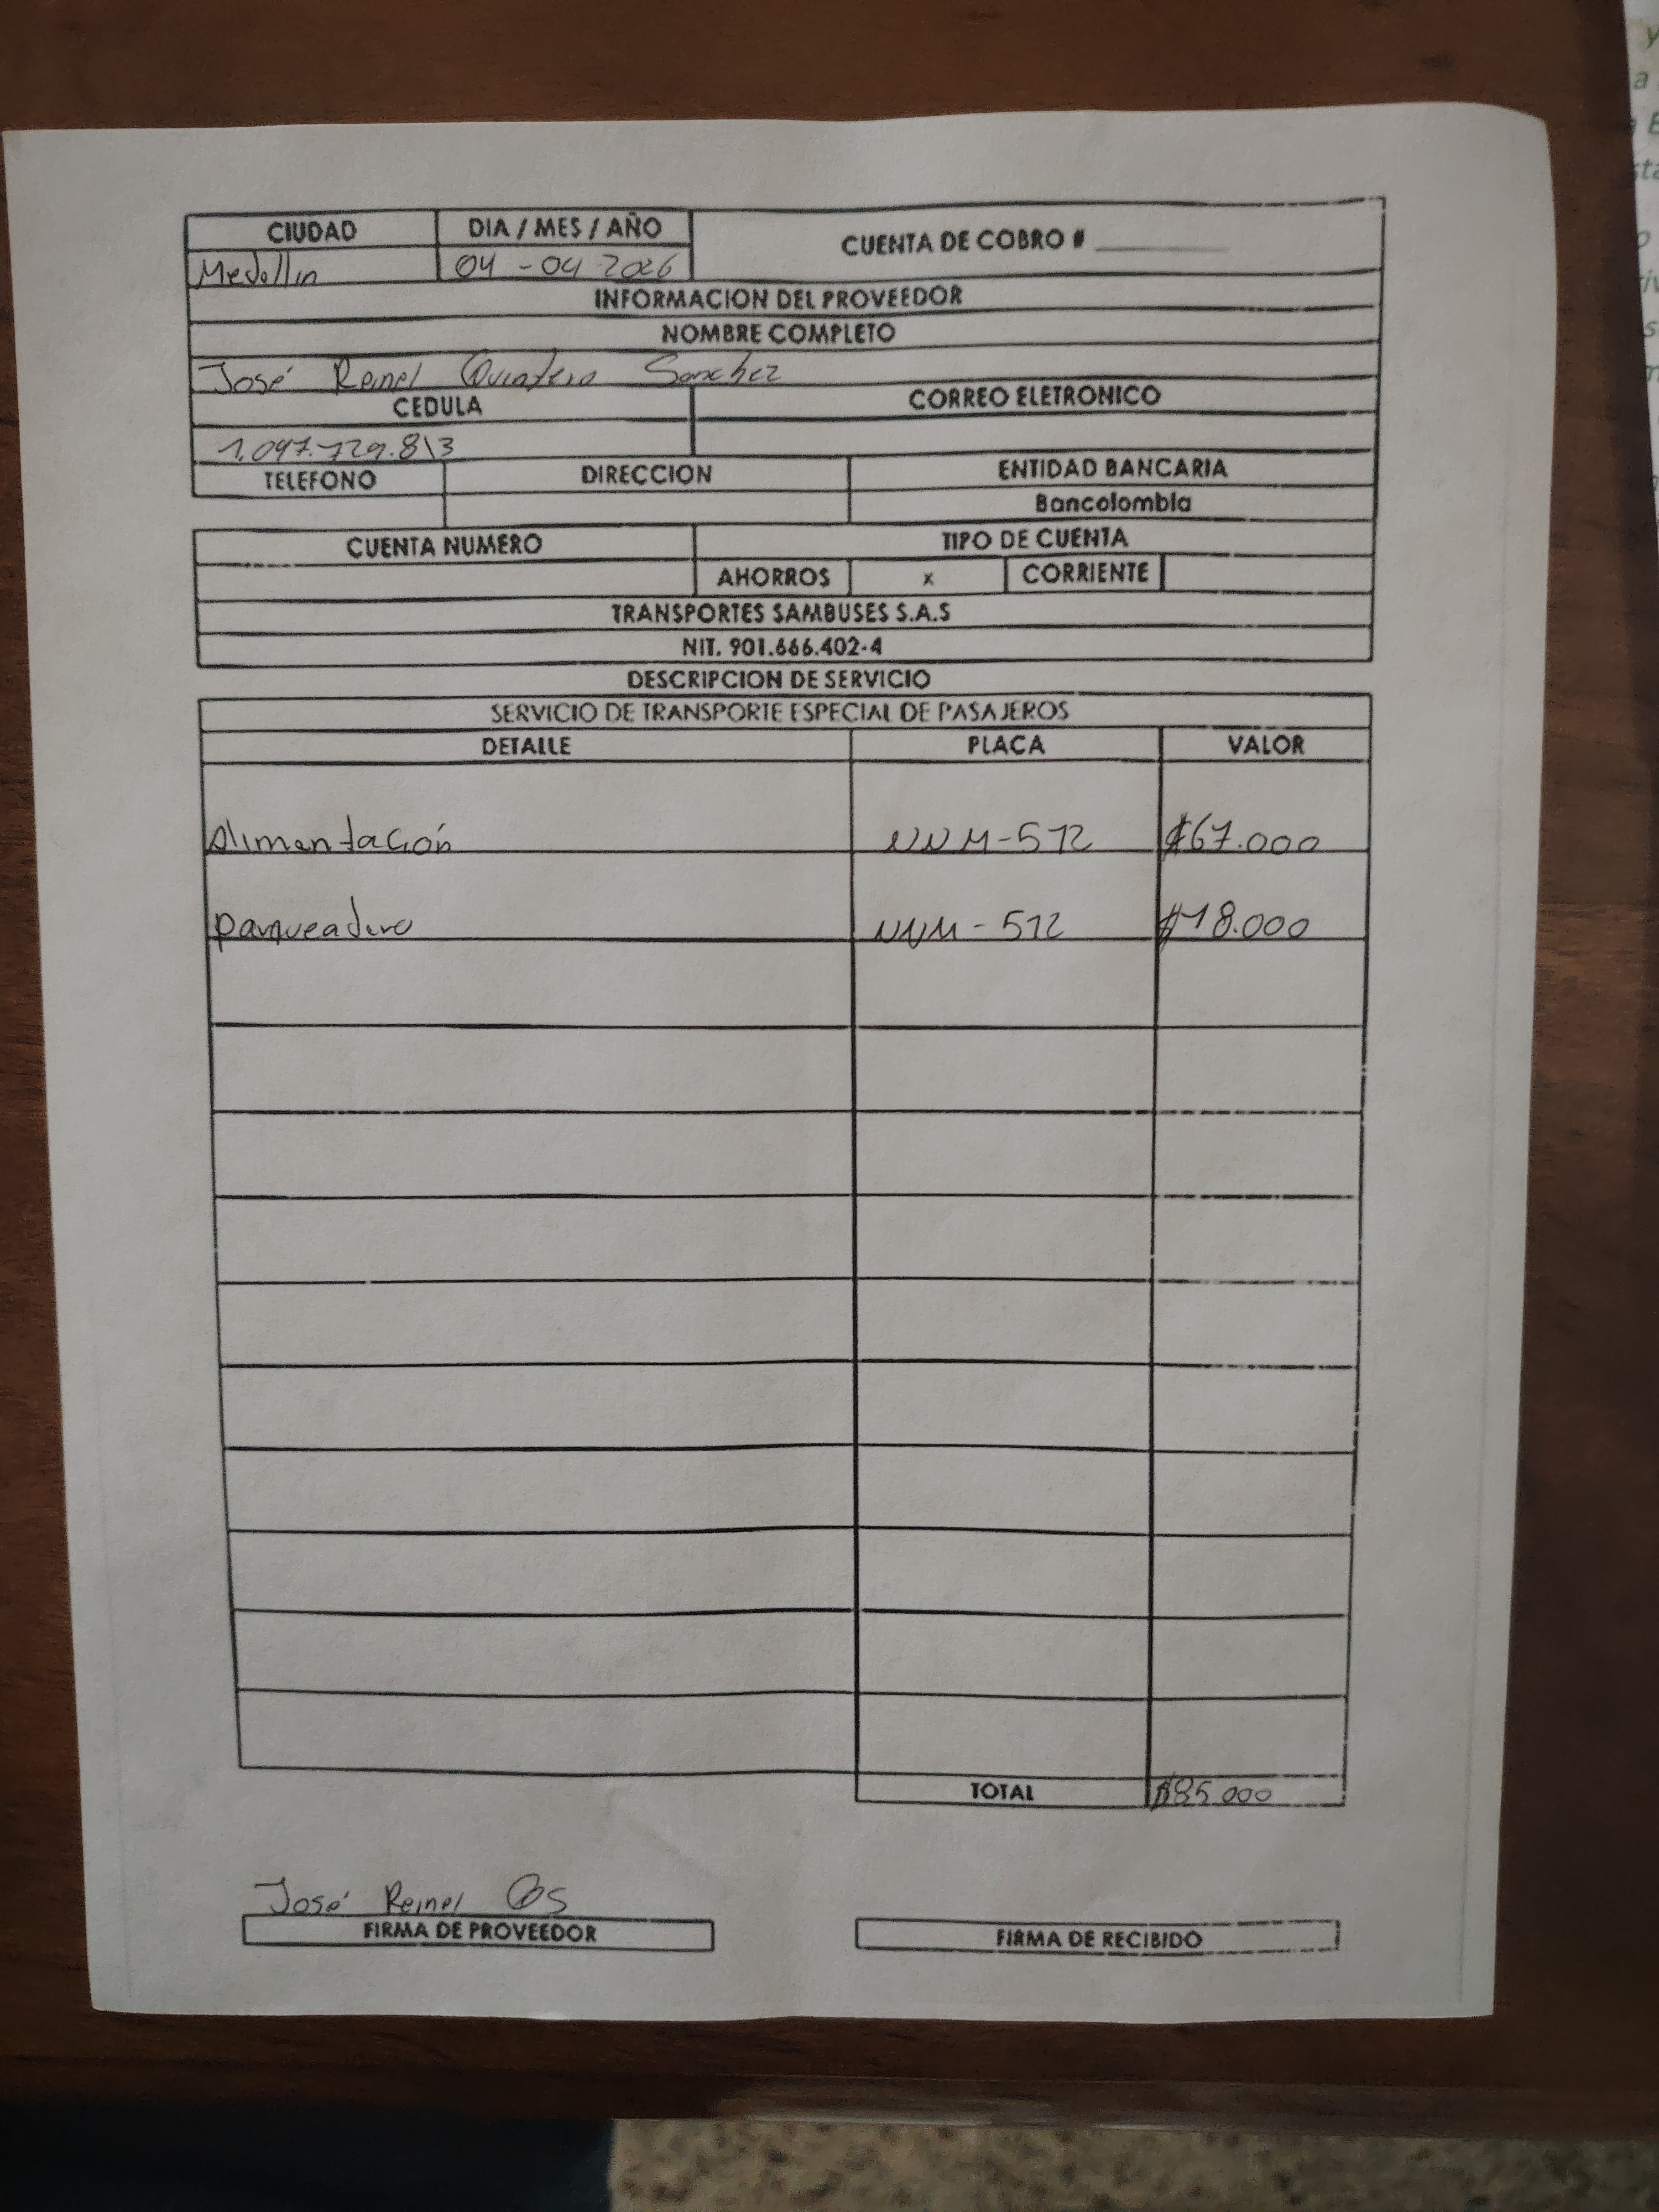 CIUDAD DIA / MES / AÑO CUENTA DE COBRO #
Medellin 04 - 04 2026
INFORMACION DEL PROVEEDOR
NOMBRE COMPLETO
José Reinel Quintero Sanchez
CEDULA CORREO ELETRONICO
1.097.729.813
TELEFONO DIRECCION ENTIDAD BANCARIA
Bancolombia
CUENTA NUMERO TIPO DE CUENTA
AHORROS x CORRIENTE
TRANSPORTES SAMBUSES S.A.S
NIT. 901.666.402-4
DESCRIPCION DE SERVICIO
SERVICIO DE TRANSPORTE ESPECIAL DE PASAJEROS
DETALLE PLACA VALOR
Alimentación NNM-512 $67.000
parqueadero NNM-512 $18.000
TOTAL $85.000
José Reinel QS
FIRMA DE PROVEEDOR FIRMA DE RECIBIDO